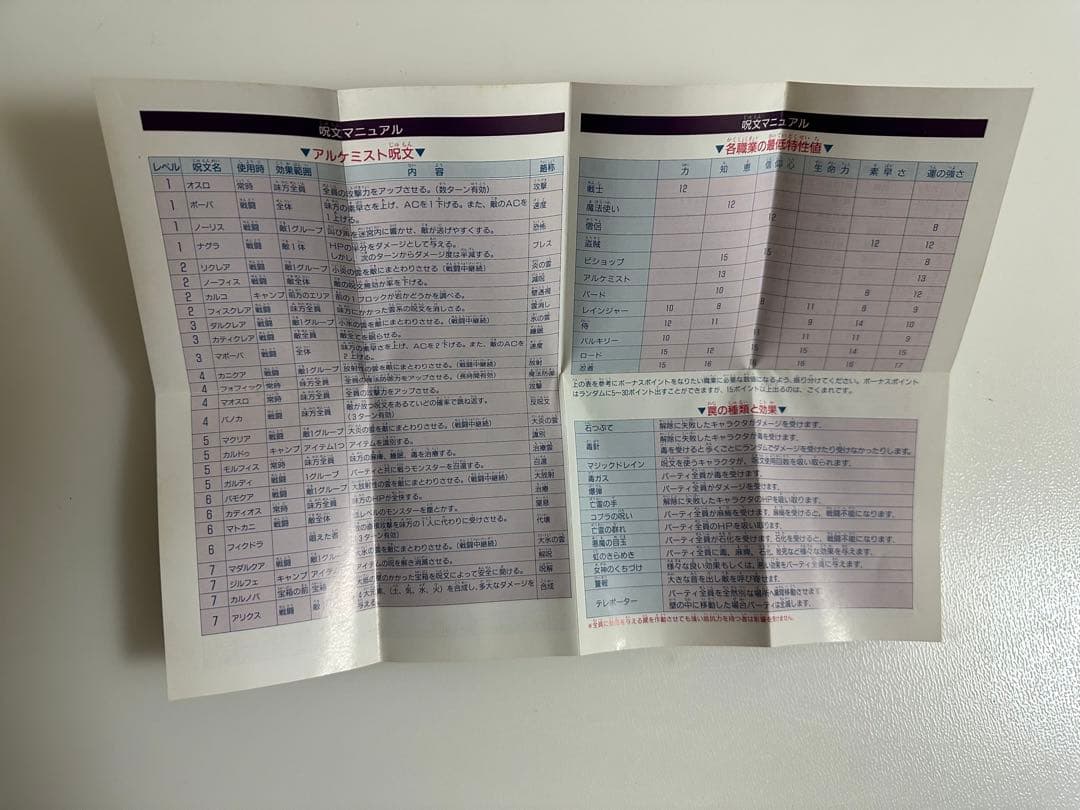 呪文マニュアル
▼アルケミスト呪文▼
レベル 呪文名 使用時 効果範囲 内容 略称
1 オスロ 常時 味方全員 全員の攻撃力をアップさせる。(数ターン有効) 攻撃
1 ポーバ 戦闘 全体 味方の素早さを上げ、ACを1下げる。また、敵のACを1上げる。 速度
1 ノーリス 戦闘 敵1グループ 叫び声を迷宮内に響かせ、敵が逃げやすくする。 恐怖
1 ナグラ 戦闘 敵1体 HPの半分をダメージとして与える。しかし、次のターンからダメージ度は半減する。 ブレス
2 リクレア 戦闘 敵1グループ 小炎の雲を敵にまとわりさせる(戦闘中継続) 炎の雲
2 ノーフィス 戦闘 敵全体 敵の呪文無効が率を下げる。 減呪
2 カルコ キャンプ 前方のエリア 前の1ブロックが岩かどうかを調べる。 壁透視
2 フィスクレア 戦闘 味方全員 味方にかかった雲系の呪文を消しさる。 雲消し
3 ダルクレア 戦闘 敵1グループ 小水の雲を敵にまとわりさせる。(戦闘中継続) 水の雲
3 カティクレア 戦闘 敵全員 敵全てを眠らせる。 睡眠
3 マポーバ 戦闘 全体 味方の素早さを上げ、ACを2下げる。また、敵のACを2上げる。 速度
4 カニクア 戦闘 敵1グループ 放射性の雲を敵にまとわりさせる。(戦闘中継続) 放射
4 フォフィック 常時 味方全員 全員の魔法防御力をアップさせる。(長時間有効) 魔法防御
4 マオスロ 常時 味方全員 全員の攻撃力をアップさせる。 攻撃
4 バノカ 戦闘 味方全員 敵が放つ呪文をあるていどの確率で跳ね返す。(3ターン有効) 反呪文
5 マクリア 戦闘 敵1グループ 大炎の雲を敵にまとわりさせる。(戦闘中継続) 大炎の雲
5 カルドゥ キャンプ アイテム1つ アイテムを識別する。 識別
5 モルフィス 常時 味方全員 味方の麻痺、睡眠、毒を治療する。 治療雲
5 ガルディ 戦闘 1グループ パーティと共に戦うモンスターを召還する。 召還
6 バモクア 戦闘 敵1グループ 大放射性の雲を敵にまとわりさせる。(戦闘中継続) 大放射
6 カディオス 常時 味方全員 味方のHPが全快する。 治療
6 マトカニ 戦闘 敵全体 レベルのモンスターを塵とかす。 窒息
6 フィクドラ 戦闘 唱えた者 の直接攻撃を味方の1人に代わりに受けさせる。3ターン有効) 代壊
7 マダルクア 戦闘 敵1グルー 大水の雲を敵にまとわりさせる。(戦闘中継続) 大水の雲
7 ジルフェ キャンプ アイテ テムの呪を解き消滅させる。 解呪
7 カルノバ 宝箱の前 宝箱 のかかった宝箱を呪文によって安全に開ける。 呪解
7 アリクス 戦闘 敵 4大元素、(土、気、水、火)を合成し、多大なダメージを与える 合成
呪文マニュアル
▼各職業の最低特性値▼
力 知恵 信仰心 生命力 素早さ 運の強さ
戦士 12
魔法使い 12
僧侶 12 8
盗賊 12 12
ビショップ 15 15 8
アルケミスト 13 13
バード 10 8 12
レインジャー 10 8 8 11 8 9
侍 12 11 9 14 10
バルキリー 10 11 11 10 9
ロード 15 12 15 15 14 15
忍者 15 16 15 16 16 17
上の表を参考にボーナスポイントをなりたい職業に必要な数値になるよう、振り分けてください。ボーナスポイント
はランダムに5~30ポイント出すことができますが、15ポイント以上出るのは、ごくまれです。
▼罠の種類と効果▼
石つぶて 解除に失敗したキャラクタがダメージを受けます。
毒針 解除に失敗したキャラクタが毒を受けます。
毒を受けると歩くごとにランダムでダメージを受けたり受けなかったりします。
マジックドレイン 呪文を使うキャラクタが、呪文使用回数を吸い取られます。
毒ガス パーティ全員が毒を受けます。
爆弾 パーティ全員がダメージを受けます。
亡霊の手 解除に失敗したキャラクタのHPを吸い取ります。
コブラの呪い パーティ全員が麻痺を受けます。麻痺を受けると、戦闘不能になります。
亡霊の群れ パーティ全員のHPを吸い取ります。
悪魔の目玉 パーティ全員が石化を受けます。石化を受けると、戦闘不能になります。
虹のきらめき パーティ全員に毒、麻痺、石化、発見など様々な効果を与えます。
女神のくちづけ 様々な良い効果もしくは、悪い効果をパーティ全員に与えます。
警報 大きな音を出し敵を呼び寄せます。
テレポーター パーティ全員を全然別な場所へ瞬間移動させます。
壁の中に移動した場合パーティは全滅します。
※全員に効果を与える罠を作動させても強い抵抗力を持つ者は影響を受けません。